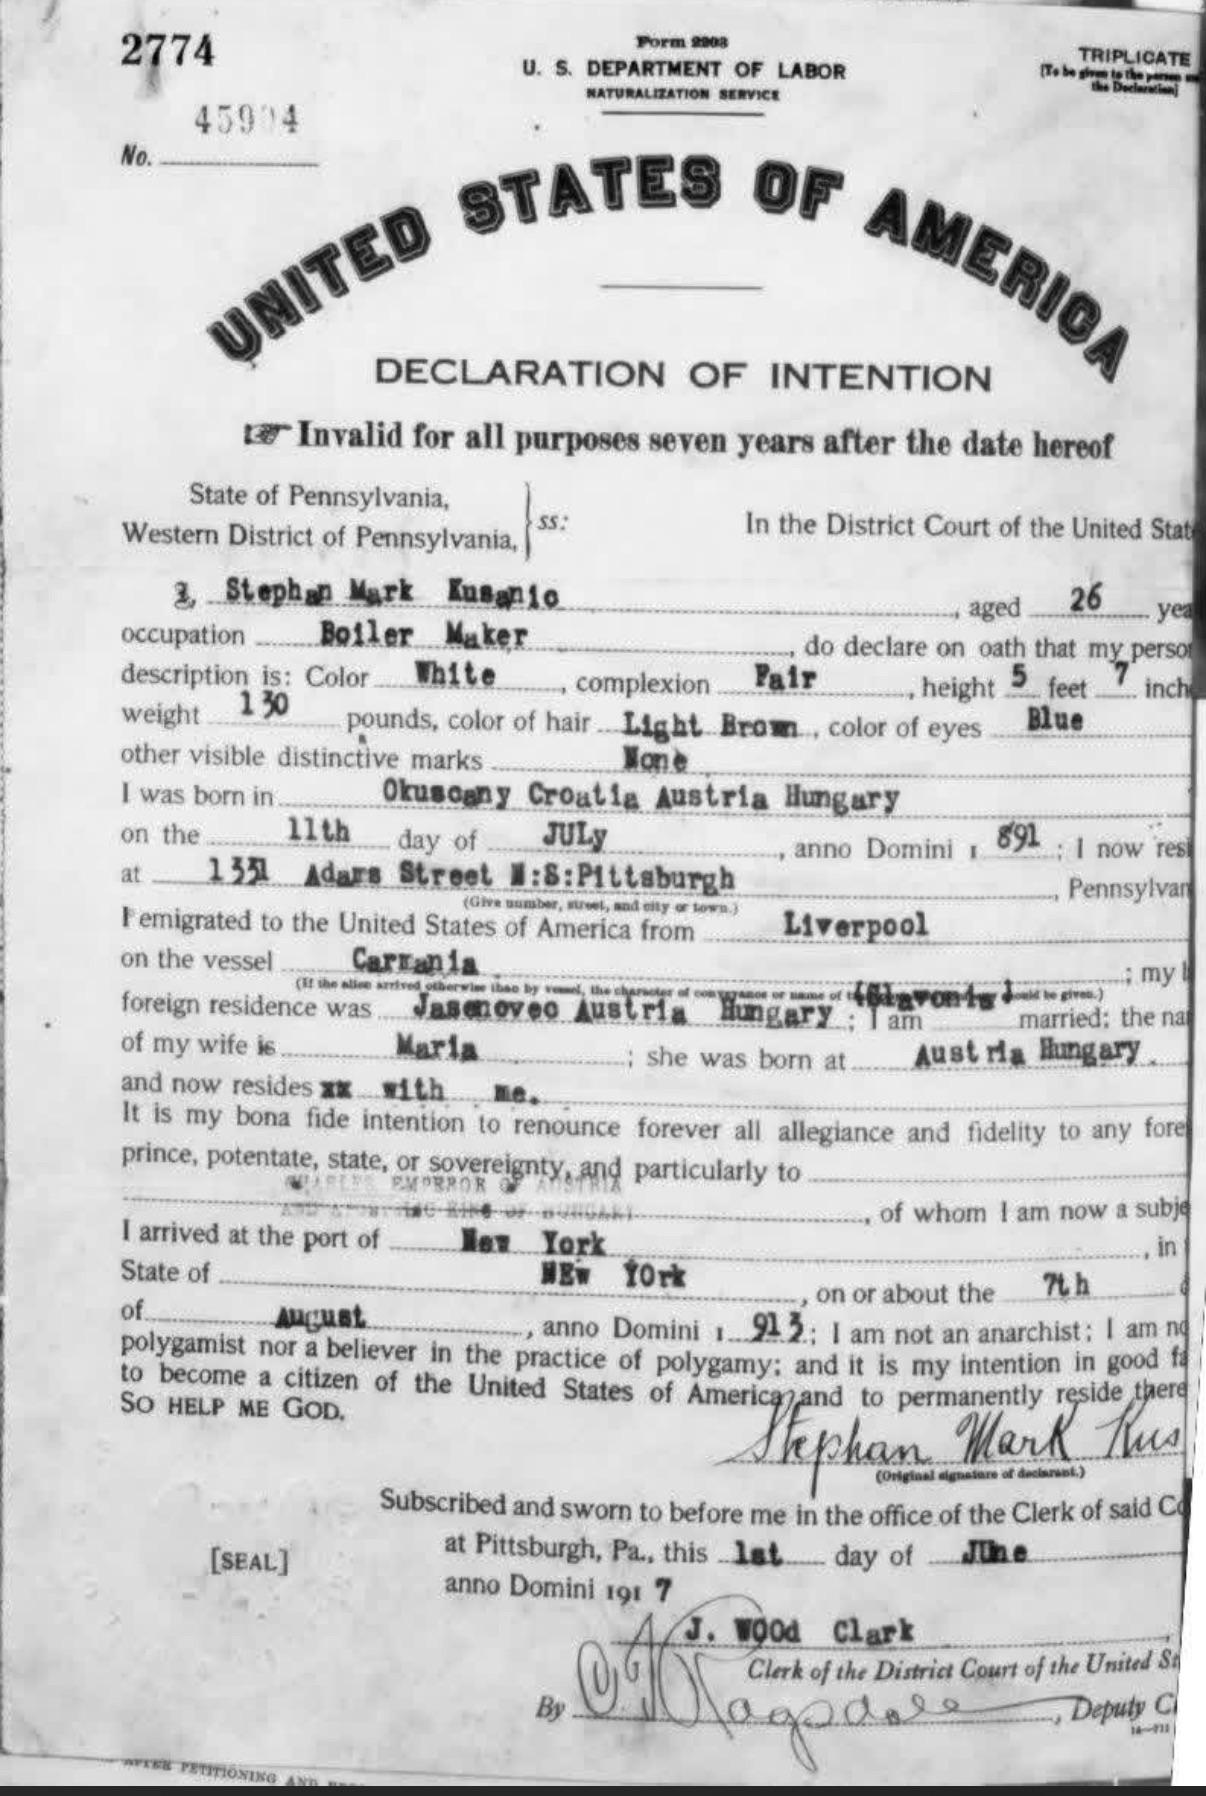 2774
Form 2203
U. S. DEPARTMENT OF LABOR
NATURALIZATION SERVICE
TRIPLICATE
[To be given to the person
the Declaration]
No.
UNITED STATES OF AMERICA
DECLARATION OF INTENTION
☞ Invalid for all purposes seven years after the date hereof
State of Pennsylvania,
Western District of Pennsylvania, ss:
In the District Court of the United Stat
I, Stephan Mark Kusanic, aged 26 yea
occupation Boiler Maker, do declare on oath that my person
description is: Color White, complexion Fair, height 5 feet 7 inch
weight 130 pounds, color of hair Light Brown, color of eyes Blue
other visible distinctive marks None
I was born in Okuscany Croatia Austria Hungary
on the 11th day of JULy, anno Domini 1 891; I now resi
at 1331 Adams Street N:S:Pittsburgh, Pennsylvan
(Give number, street, and city or town.)
I emigrated to the United States of America from Liverpool
on the vessel Carmania; my l
(If the alien arrived otherwise than by vessel, the character of conveyance or name of (Slavonia) ould be given.)
foreign residence was Jasenovec Austria Hungary; I am married; the na
of my wife is Maria; she was born at Austria Hungary.
and now resides xx with me.
It is my bona fide intention to renounce forever all allegiance and fidelity to any fore
prince, potentate, state, or sovereignty, and particularly to
CHARLES EMPEROR OF AUSTRIA
AND APOSTOLIC KING OF HUNGARY, of whom I am now a subje
I arrived at the port of New York, in
State of NEw YOrk, on or about the 7th
of August, anno Domini 1 913; I am not an anarchist; I am no
polygamist nor a believer in the practice of polygamy; and it is my intention in good fa
to become a citizen of the United States of America and to permanently reside there
SO HELP ME GOD.
Stephan Mark Kus
(Original signature of declarant.)
Subscribed and sworn to before me in the office of the Clerk of said Co
[SEAL]
at Pittsburgh, Pa., this 1st day of JUne
anno Domini 191 7
J. WOOd Clark
Clerk of the District Court of the United St
By Ragsdale, Deputy Cl
AFTER PETITIONING AND